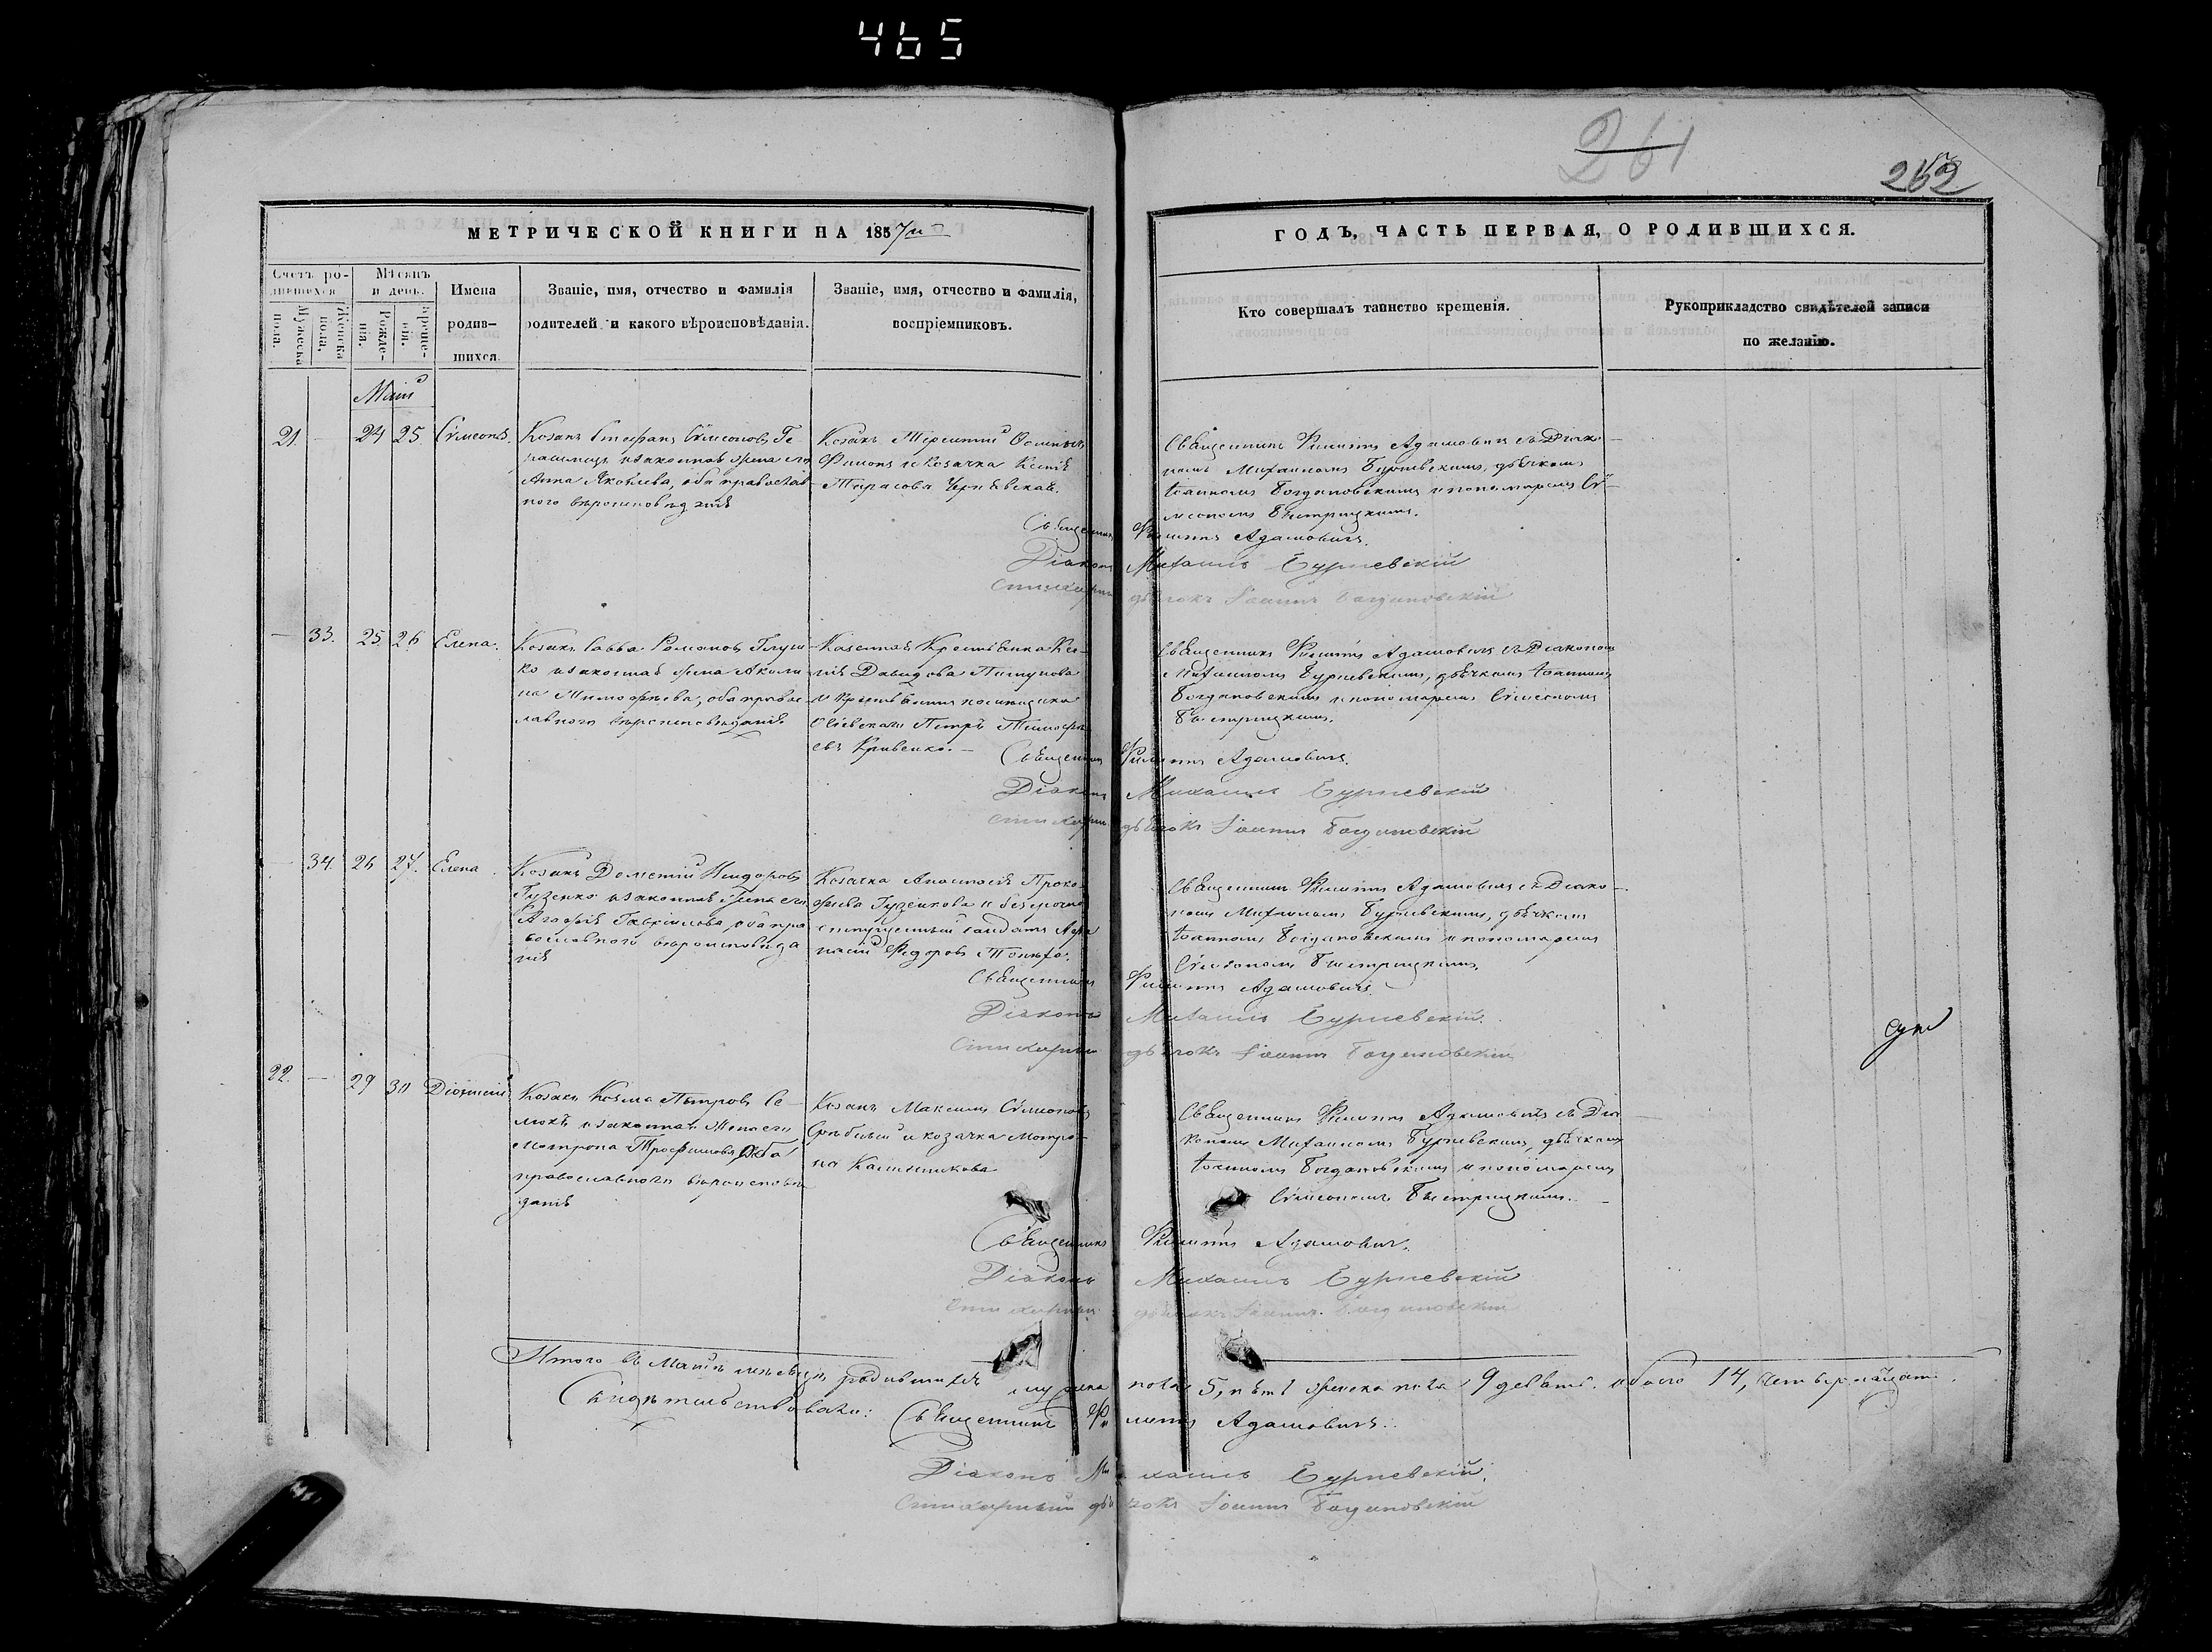 465
261
262
МЕТРИЧЕСКОЙ КНИГИ НА 1857й
ГОДЪ, ЧАСТЬ ПЕРВАЯ, О РОДИВШИХСЯ.
Счетъ ро-
дившихся
Мужеска
пола.
Женска
пола.
Мѣсяцъ
и день.
Рожде-
нія.
Креще-
нія.
Имена
родив-
шихся.
Званіе, имя, отчество и фамилія
родителей, и какого вѣроисповѣданія.
Званіе, имя, отчество и фамилія,
воспріемниковъ.
Кто совершалъ таинство крещенія.
Рукоприкладство свидѣтелей записи
по желанію.
Маій
21. 24 25. Сѵмеонъ.
Козакъ Стефанъ Сѵмеоновъ Ге-
законная жена его
Анна Яковлева, оба православ-
ного вѣроисповѣданія
Козакъ Терентій
и козачка Ксенія
Тарасова Чернѣвская.
Священникъ Филиппъ Адамовичъ съ Діако-
номъ Михаиломъ Бурневскимъ, дьячкомъ
Іоанномъ Богдановскимъ и пономаремъ Сѵ-
меономъ Быстрицкимъ.
Священникъ Филиппъ Адамовичъ.
Діаконъ Михаилъ Бурневскій
Стихарный дьячокъ Іоаннъ Богдановскій
33. 25. 26 Елена.
Козакъ Савва Романовъ Глуш-
ко и законная жена Акили-
на Тимофѣева, оба правос-
лавного вѣроисповѣданія
Казенная Крестьянка Ксе-
нія Давидова
и крестьянинъ помѣщика
Петръ Тимофѣ-
евъ Кривенко.
Священникъ Филиппъ Адамовичъ съ Діакономъ
Михаиломъ Бурневскимъ, дьячкомъ Іоанномъ
Богдановскимъ и пономаремъ Сѵмеономъ
Быстрицкимъ.
Священникъ Филиппъ Адамовичъ.
Діаконъ Михаилъ Бурневскій
Стихарный дьячокъ Іоаннъ Богдановскій
34. 26 27. Елена
Козакъ Дометій
Гузенко и законная жена его
Агафія Гавріилова, оба пра-
вославного вѣроисповѣда-
нія
Козачка Анастасія Проко-
фіева Гузенкова и безсрочно
отпущенный солдатъ
Федоровъ
Священникъ Филиппъ Адамовичъ съ Діако-
номъ Михаиломъ Бурневскимъ, дьячкомъ
Іоанномъ Богдановскимъ и пономаремъ
Сѵмеономъ Быстрицкимъ.
Священникъ Филиппъ Адамовичъ.
Діаконъ Михаилъ Бурневскій.
Стихарный дьячокъ Іоаннъ Богдановскій
22. 29 30 Діонисій
Козакъ Козма Петровъ Се-
законная жена его
Мотрона Трофимова, оба
православного вѣроисповѣ-
данія
Козакъ Максимъ Сѵмеоновъ
и козачка Мотро-
на Калиникова
Священникъ Филиппъ Адамовичъ съ Діа-
кономъ Михаиломъ Бурневскимъ, дьячкомъ
Іоанномъ Богдановскимъ и пономаремъ
Сѵмеономъ Быстрицкимъ.
Священникъ Филиппъ Адамовичъ.
Діаконъ Михаилъ Бурневскій
Стихарный дьячокъ Іоаннъ Богдановскій
Итого въ Маіи мѣсяцѣ родившихся мужска пола 5, пять женска пола 9 девять. обоего 14, четырнадцать.
Свидѣтельствовали: Священникъ Филиппъ Адамовичъ.
Діаконъ Михаилъ Бурневскій.
Стихарный дьячокъ Іоаннъ Богдановскій